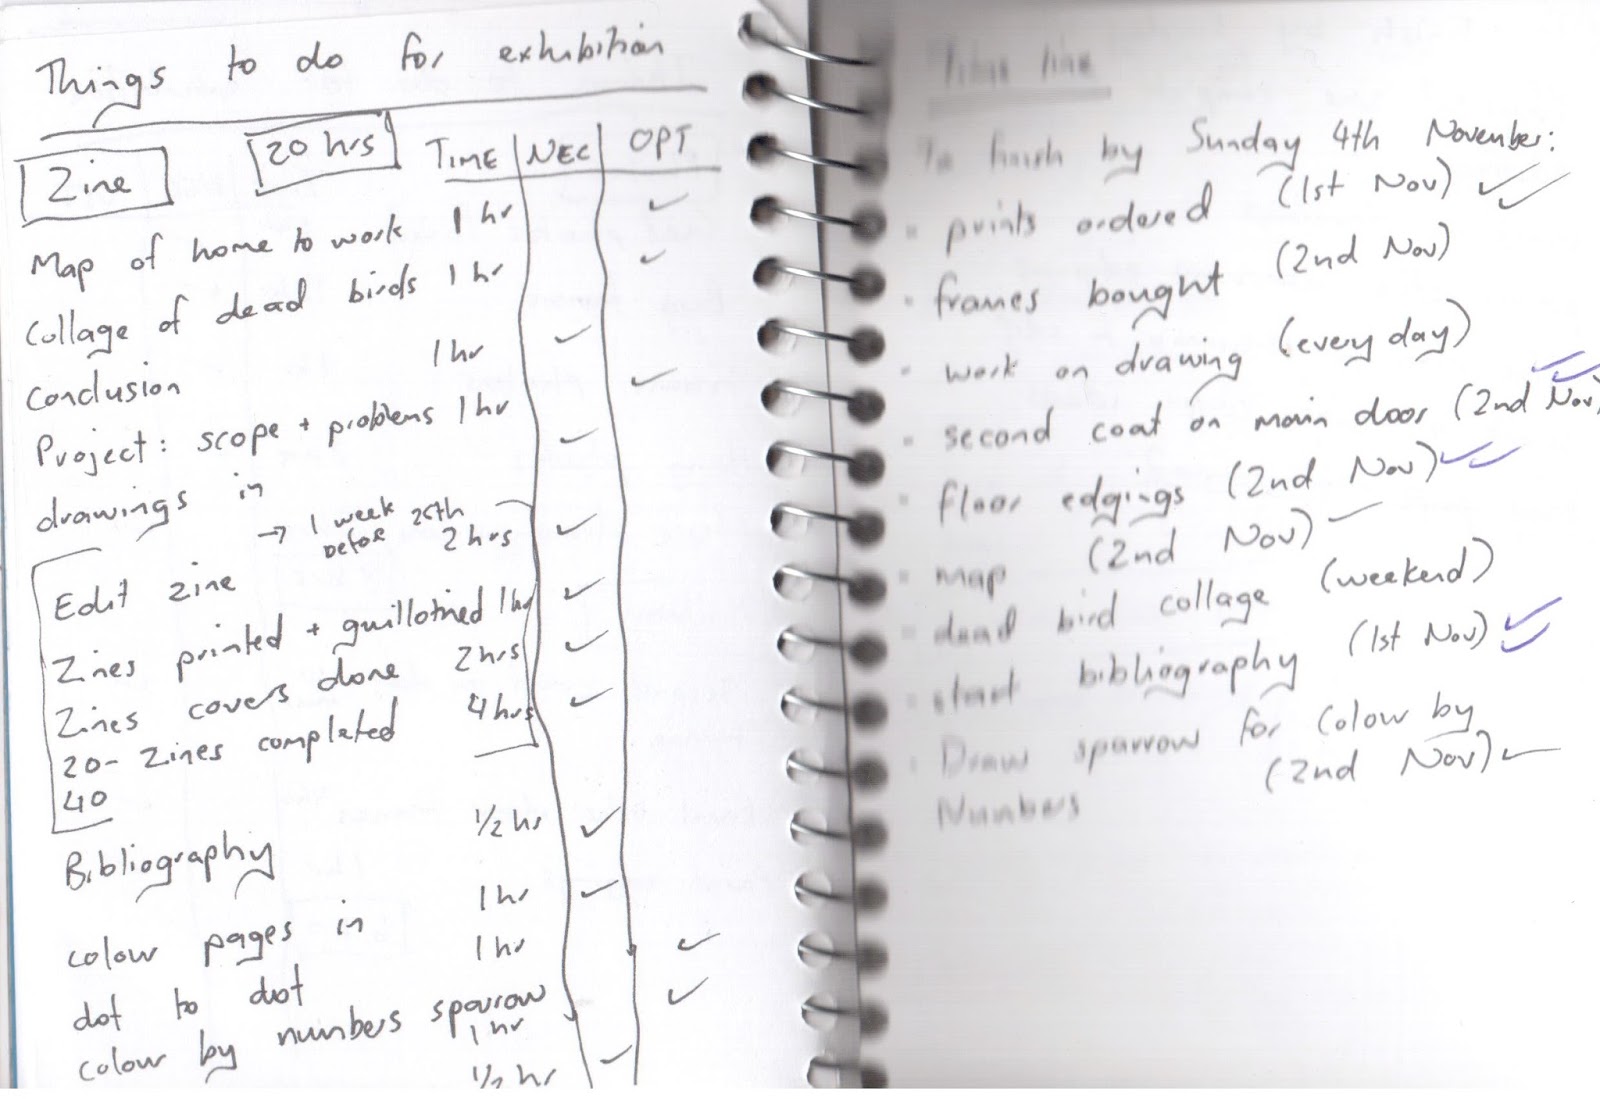 Things to do for exhibition
Zine 20 hrs TIME NEC OPT
Map of home to work 1 hr ✓
Collage of dead birds 1 hr ✓
Conclusion 1 hr ✓
Project: scope + problems 1 hr ✓
drawings in ✓
→ 1 week before 25th
Edit zine 2 hrs ✓
Zines printed + guillotined 1 hr ✓
Zines covers done 2 hrs ✓
20- Zines completed 4 hrs ✓
40
Bibliography 1/2 hr ✓
colour pages in 1 hr ✓
dot to dot 1 hr ✓
colour by numbers sparrow ✓
1 hr
1/2 hr ✓
Time line
To finish by Sunday 4th November:
• prints ordered (1st Nov) ✓✓
• frames bought (2nd Nov)
• work on drawing (every day)
• second coat on main door (2nd Nov) ✓✓
• floor edgings (2nd Nov) ✓✓
• map (2nd Nov) ✓
• dead bird collage (weekend)
• start bibliography (1st Nov) ✓✓
• Draw sparrow for Colour by
Numbers (2nd Nov) ✓